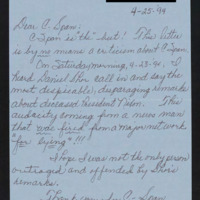 4-25-94
Dear C-Span:
C-Span is "the" best! This letter
is by no means a criticism about C-Span.
On Saturday morning, 4-23-94, I
heard Daniel Shor call in and say the
most despicable, disparaging remarks
about deceased President Nixon. This
audacity coming from a news man
that was fired from a major network
"for lying"!!!
I hope I was not the only person
outraged and offended by Shor's
remarks.
Thank you, C-Span